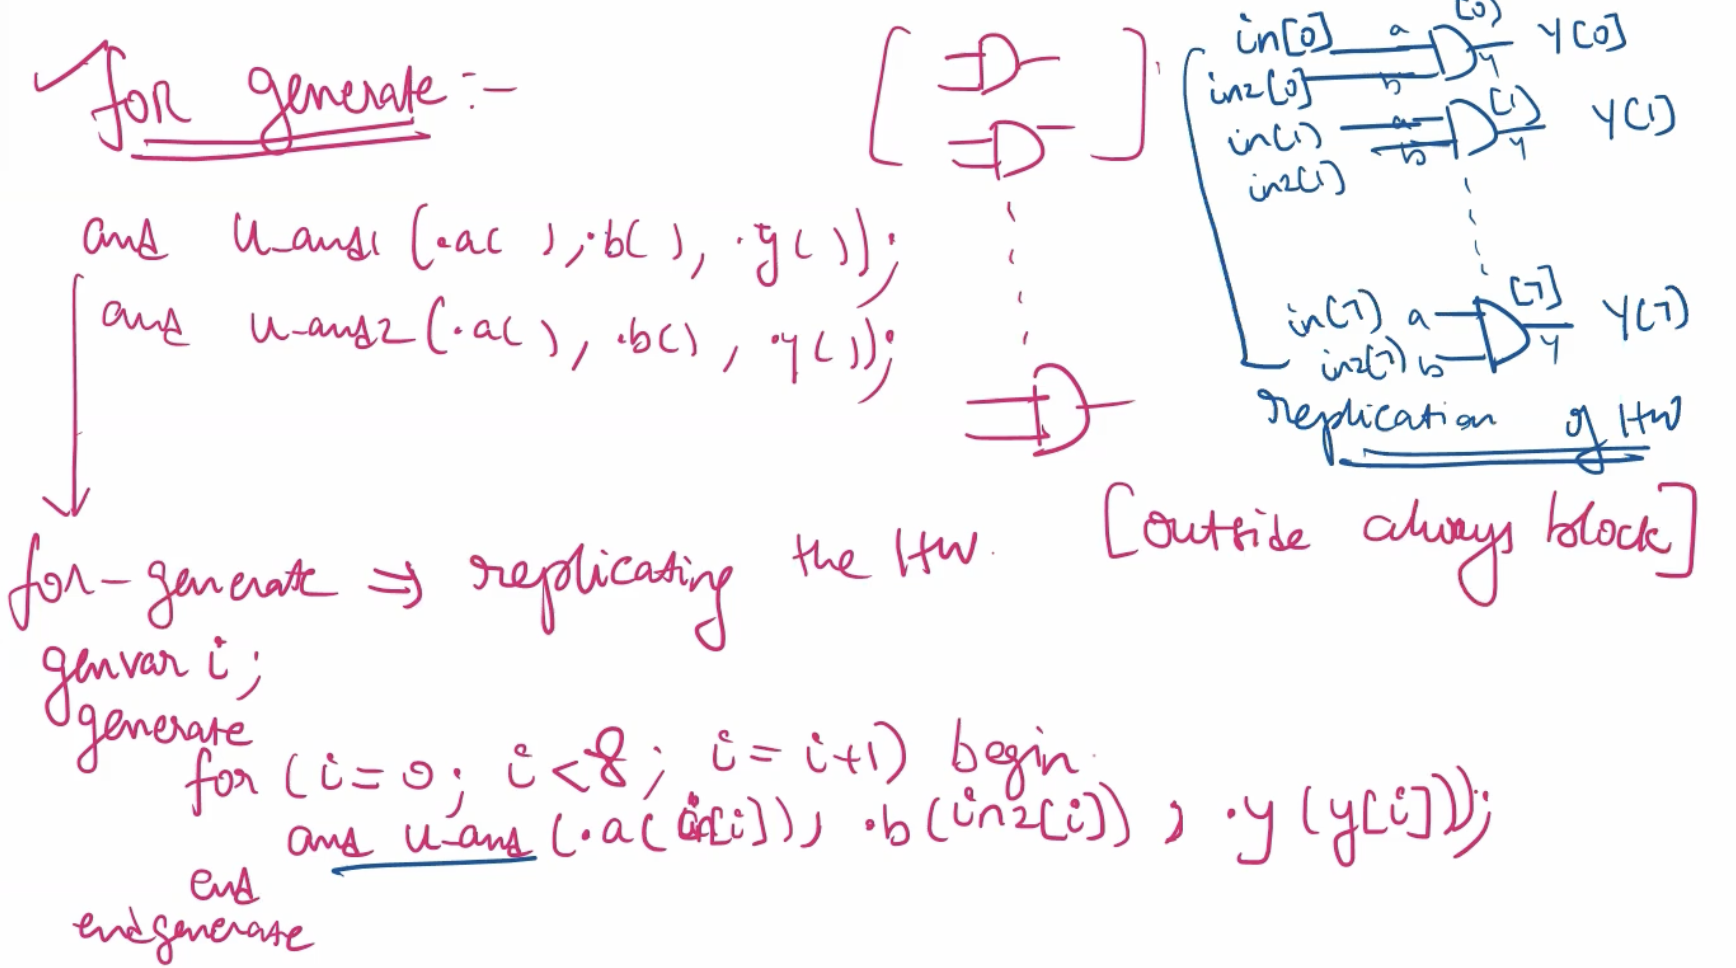 for generate :-
and u_and1 (.a( ), .b( ), .y( ));
and u_and2 (.a( ), .b( ), .y( ));
in[0] a [0] Y[0]
in2[0] b y
in[1] a [1] Y[1]
in2[1] b y
in[7] a [7] Y[7]
in2[7] b y
replication of HW
for-generate ⇒ replicating the HW. [outside always block]
genvar i;
generate
for (i=0; i<8; i=i+1) begin
and u_and (.a(in[i]), .b(in2[i]), .y(y[i]));
end
endgenerate